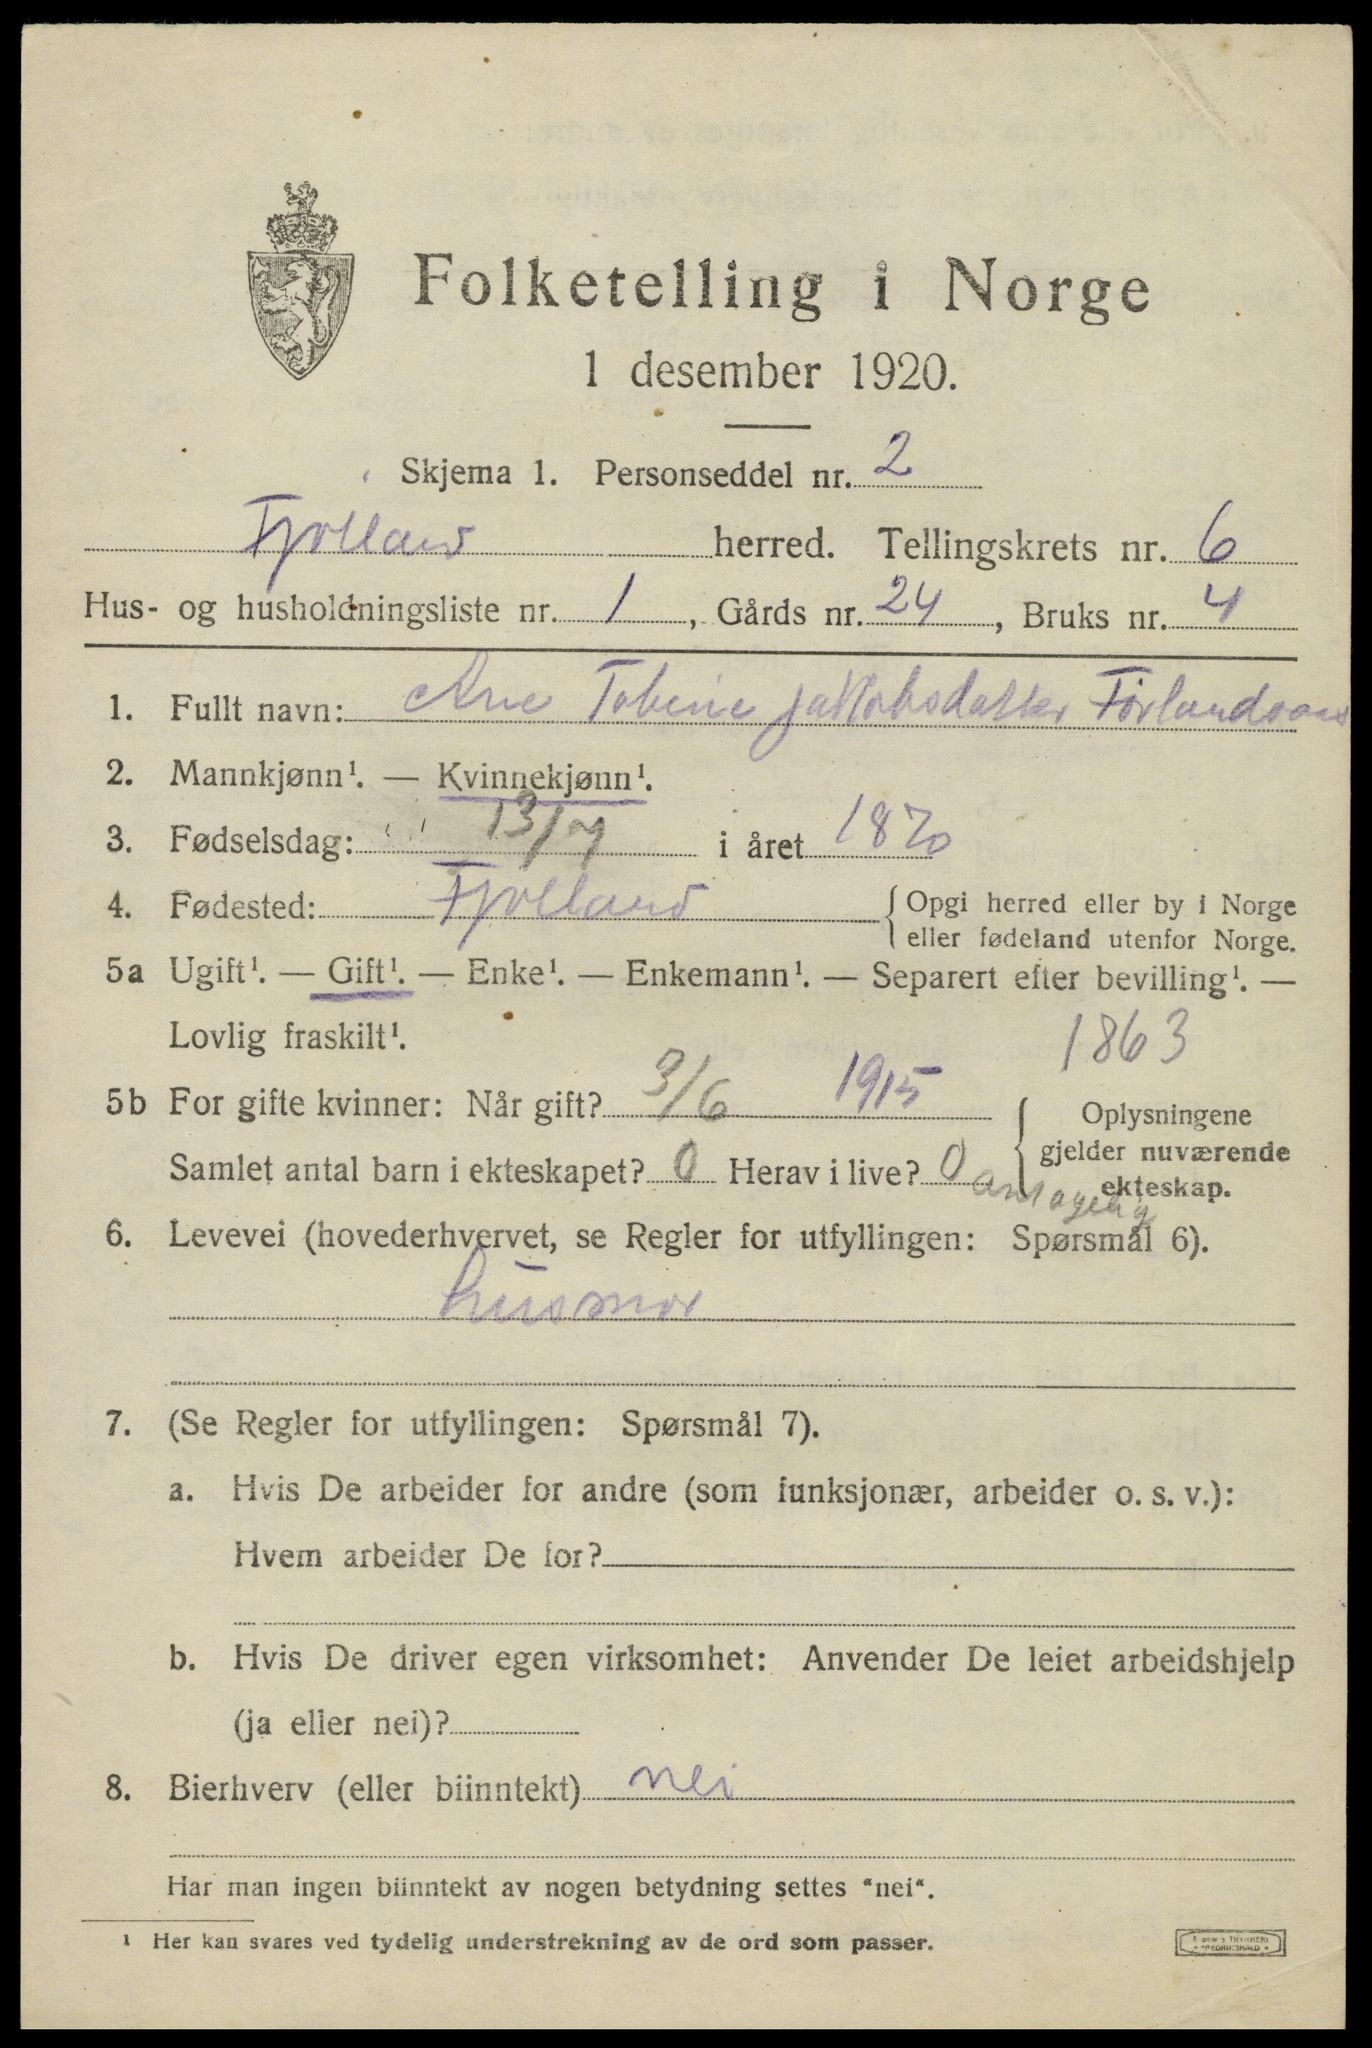 Folketelling i Norge
1 desember 1920.
Skjema 1. Personseddel nr. 2
Fjotland herred. Tellingskrets nr. 6
Hus- og husholdningsliste nr. 1, Gårds nr. 24, Bruks nr. 4
1. Fullt navn: Ane Tobine Jakobsdatter
2. Mannkjønn¹. — Kvinnekjønn¹.
3. Fødselsdag: 13/7 i året 1870
4. Fødested: Fjotland {Opgi herred eller by i Norge
eller fødeland utenfor Norge.
5a Ugift¹. — Gift¹. — Enke¹. — Enkemann¹. — Separert efter bevilling¹. —
Lovlig fraskilt¹.
1863
5b For gifte kvinner: Når gift? 3/6 1915
Samlet antal barn i ekteskapet? 0 Herav i live? 0
Oplysningene
gjelder nuværende
ekteskap.
antagelig
6. Levevei (hovederhvervet, se Regler for utfyllingen: Spørsmål 6).
husmor
7. (Se Regler for utfyllingen: Spørsmål 7).
a. Hvis De arbeider for andre (som funksjonær, arbeider o. s. v.):
Hvem arbeider De for?
b. Hvis De driver egen virksomhet: Anvender De leiet arbeidshjelp
(ja eller nei)?
8. Bierhverv (eller biinntekt) nei
Har man ingen biinntekt av nogen betydning settes "nei".
¹ Her kan svares ved tydelig understrekning av de ord som passer.